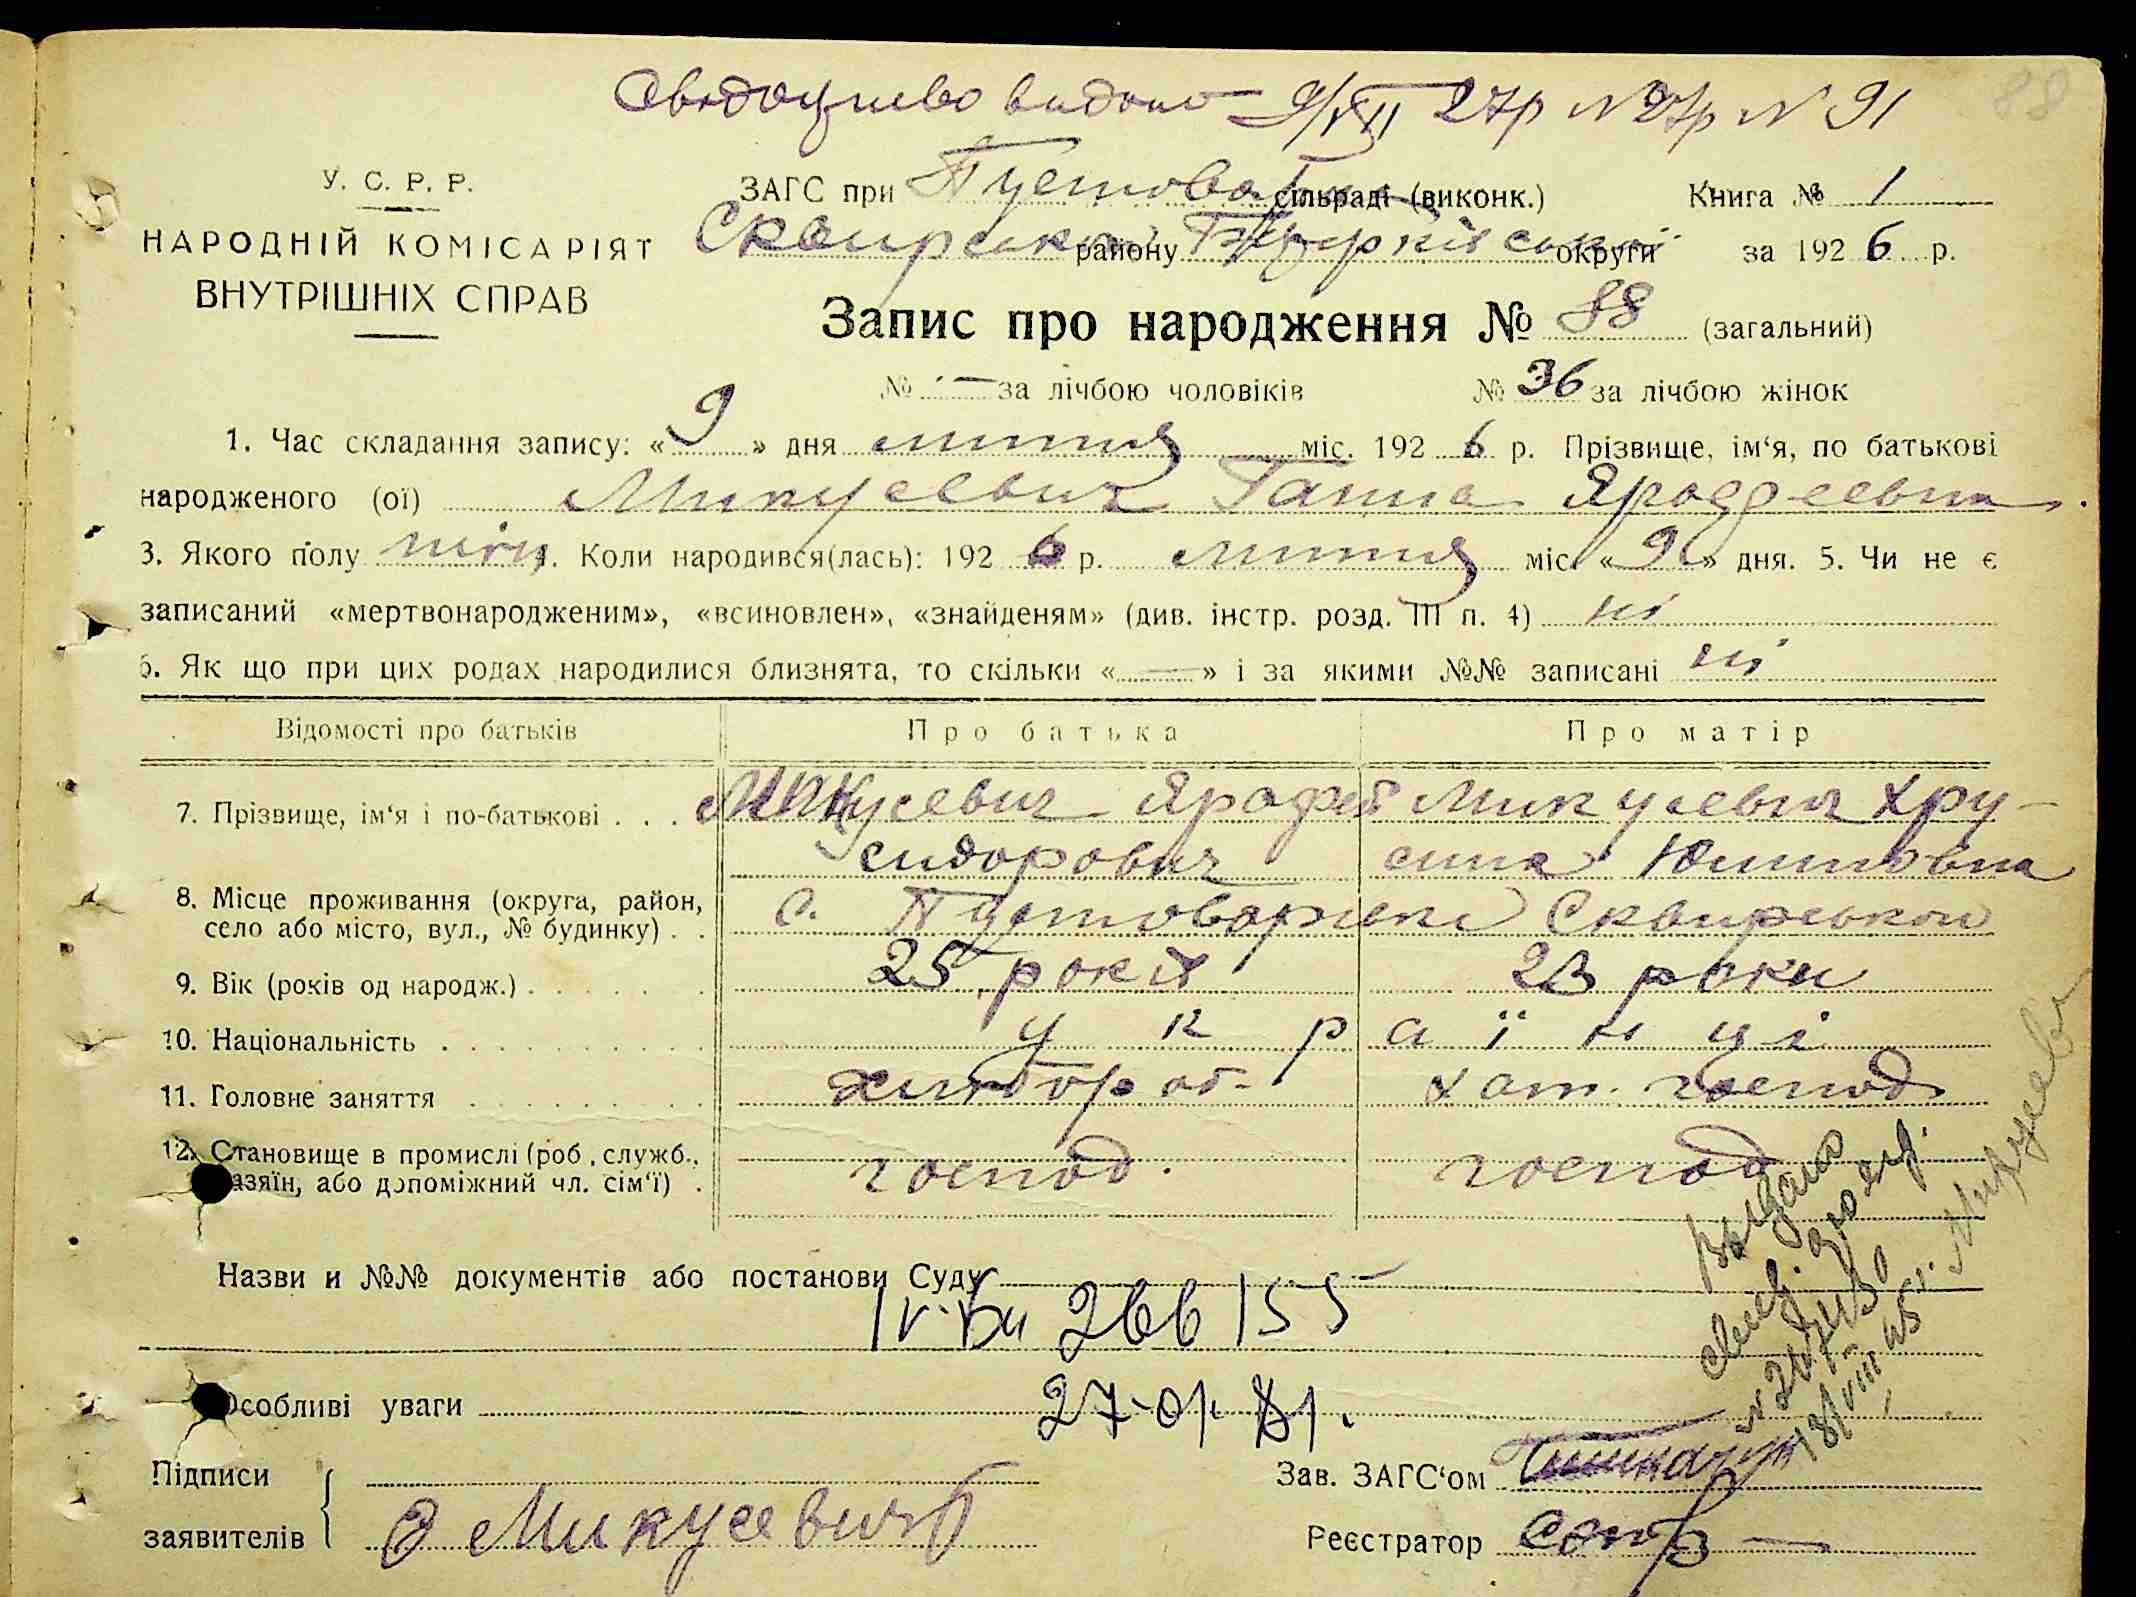 Свидоцтво видано 9/VIII 27р № 27р № 91
88
У. С. Р. Р.
НАРОДНІЙ КОМІСАРІЯТ
ВНУТРІШНІХ СПРАВ
ЗАГС при Пустовар сільраді (виконк.) Книга № 1
Сквирського району округи за 1926 р.
Запис про народження № 88 (загальний)
№ — за лічбою чоловіків № 36 за лічбою жінок
1. Час складання запису: «9» дня липня міс. 1926 р. Прізвище, ім‘я, по батькові
народженого (ої) Микусевич Ганна Ярофеевна.
3. Якого полу жіну. Коли народився(лась): 1926 р. липня міс. «9» дня. 5. Чи не є
записаний «мертвонародженим», «всиновлен», «знайденям» (див. інстр. розд. III п. 4) ні
6. Як що при цих родах народилися близнята, то скільки «—» і за якими №№ записані ні
Відомості про батьків Про батька Про матір
7. Прізвище, ім‘я і по-батькові . . . Микусевич Ярофей Микусевич Хру-
Сидорович сина Юхимовна
8. Місце проживання (округа, район, с. Пустоварівка Сквирського
село або місто, вул., № будинку) . .
9. Вік (років од народж.) . . . . . . 25 років 23 роки
10. Національність . . . . . . . . . . українці
11. Головне заняття . . . . . . . . . хлібороб- хат. господ.
12. Становище в промислі (роб., служб., господ. господ
азяїн, або допоміжний чл. сім‘ї) .
Выдано
Назви и №№ документів або постанови Суду
266155
Особливі уваги 27-01-81.
18/VIII 45
Підписи
Зав. ЗАГС‘ом
заявителів Микусевич
Реєстратор